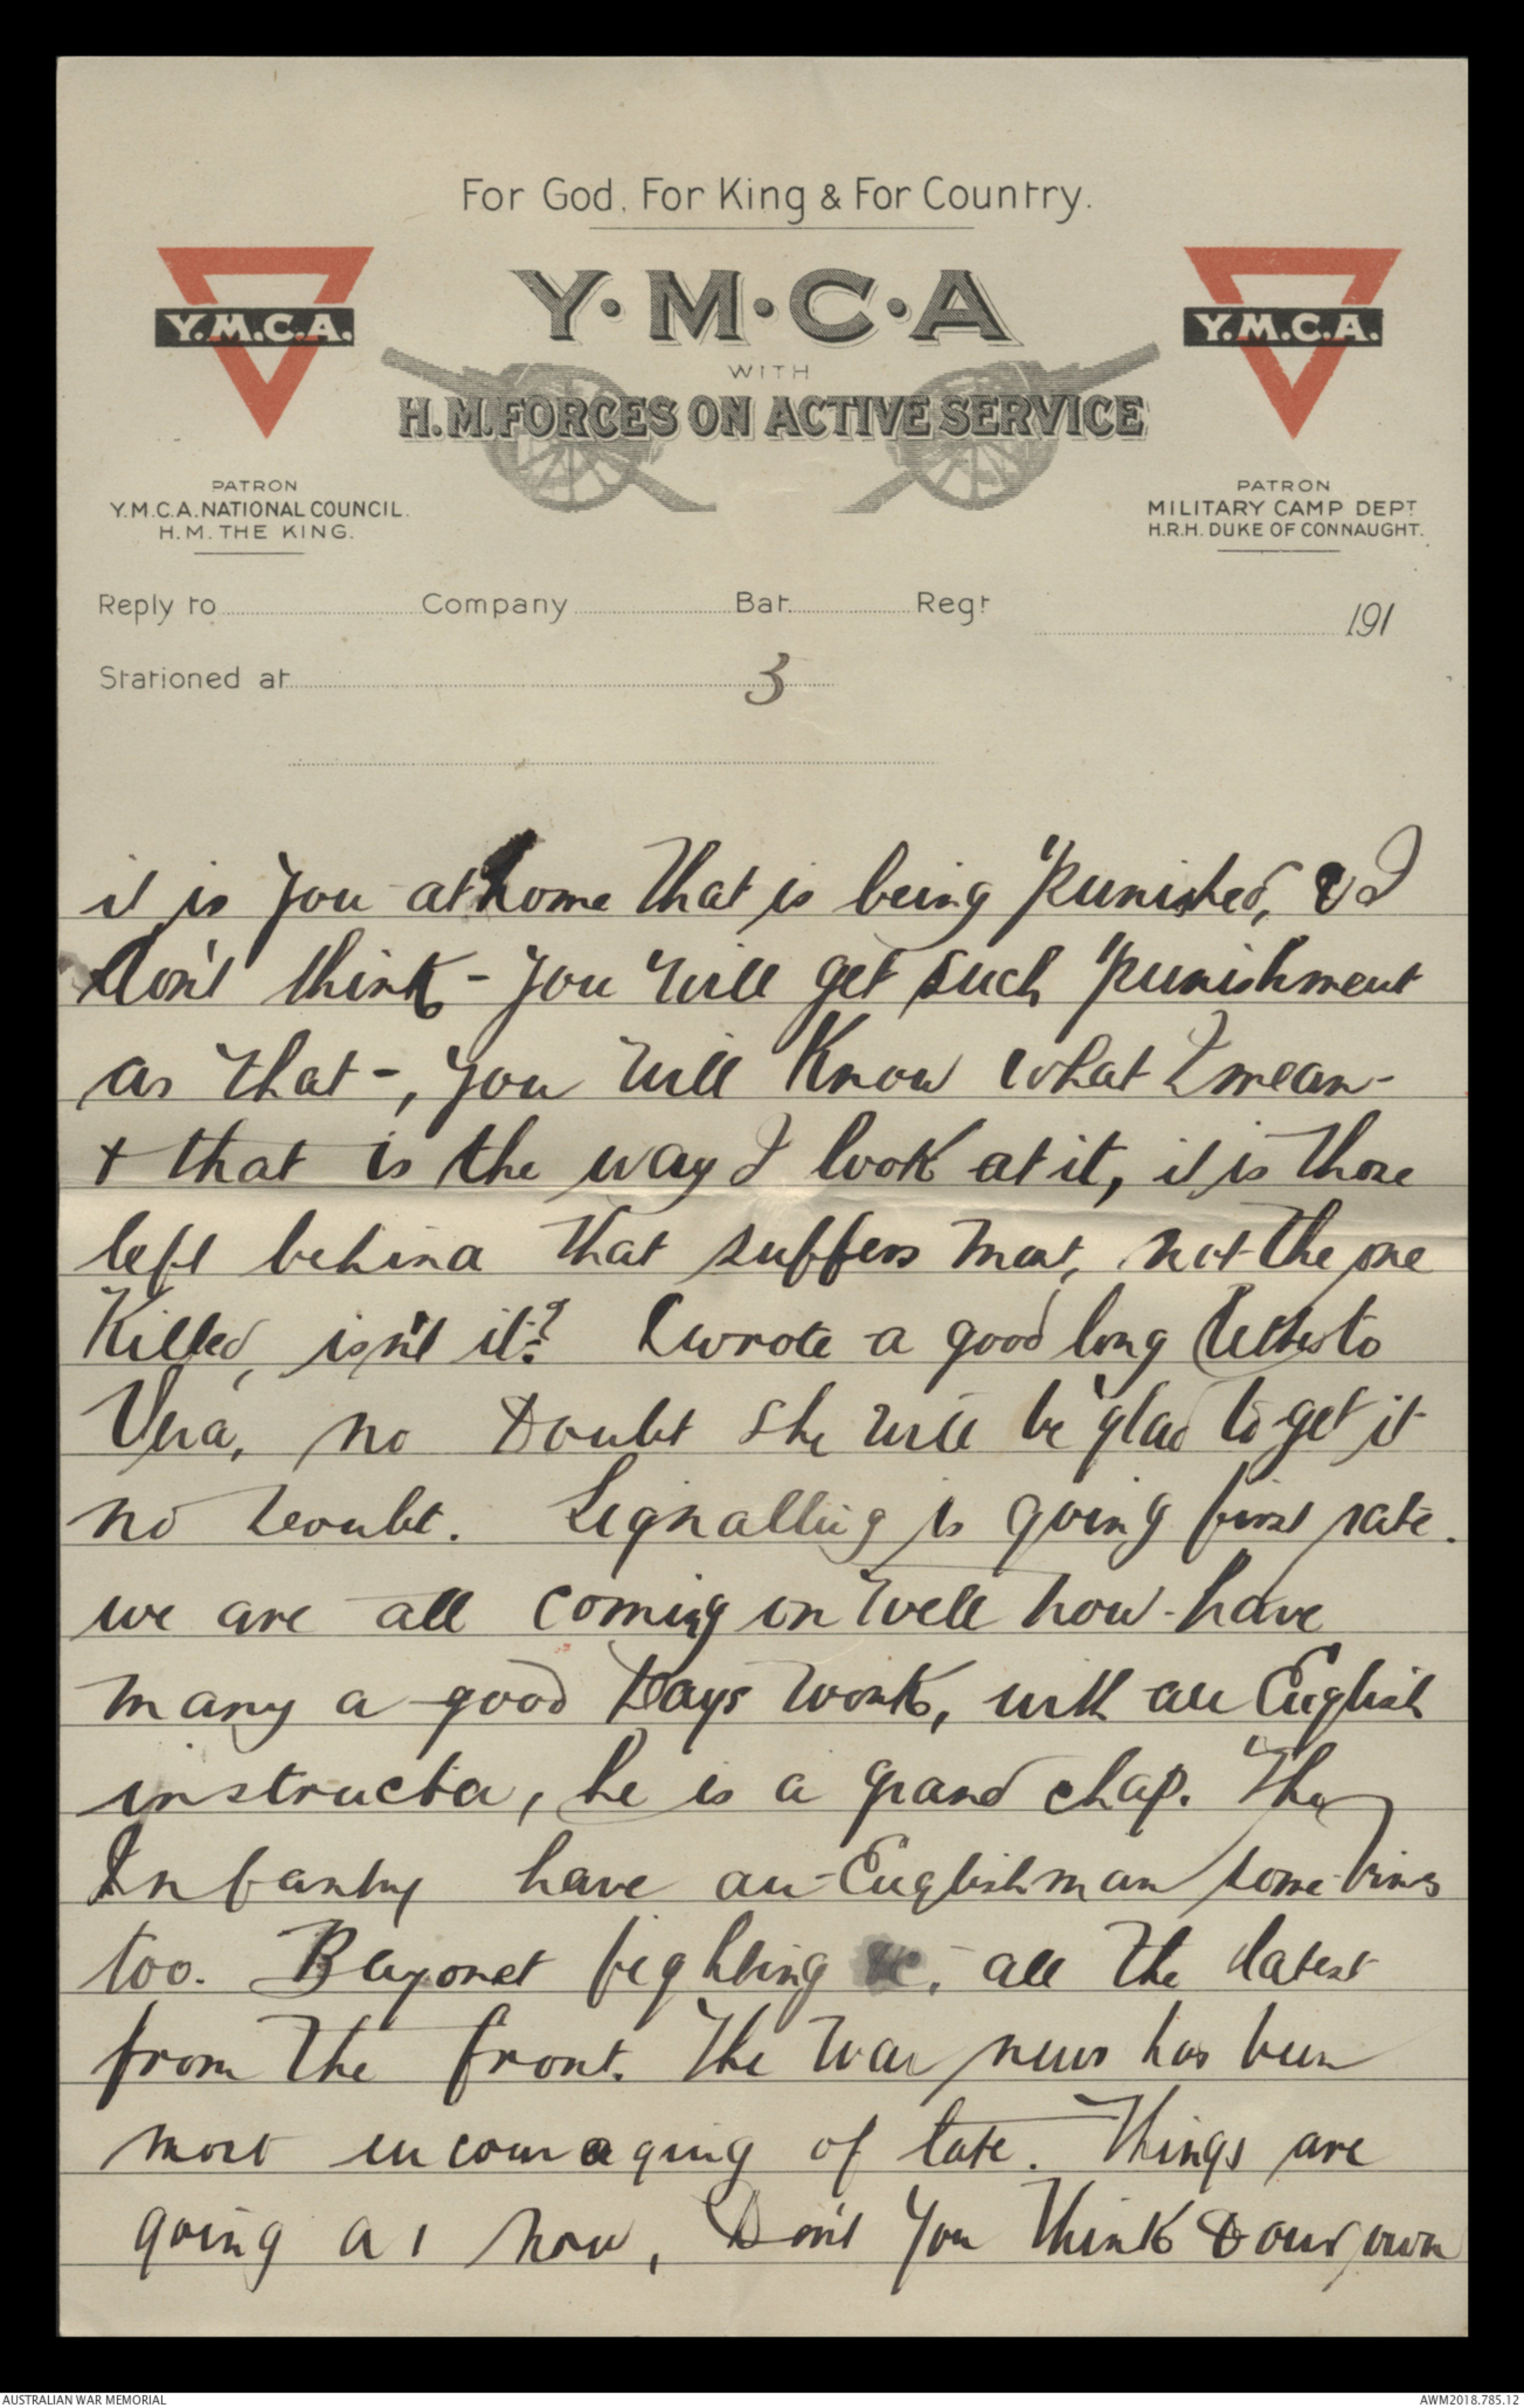 For God, For King & For Country.
Y·M·C·A
WITH
H.M. FORCES ON ACTIVE SERVICE
Y.M.C.A.
Y.M.C.A.
PATRON
Y.M.C.A. NATIONAL COUNCIL.
H.M. THE KING.
PATRON
MILITARY CAMP DEPT
H.R.H. DUKE OF CONNAUGHT.
Reply to Company Bat. Regt 191
Stationed at
3
it is you at home that is being punished, & I
don't think - you will get such punishment
as that -, you will know what I mean -
+ that is the way I look at it, it is those
left behind that suffers most, not the one
Killed, isn't it? I wrote a good long letter to
Vera, no Doubt she will be glad to get it
no doubt. Signalling is going first rate.
we are all coming on well now - have
many a good Days work, with an English
instructor, he is a grand chap. The
Infantry have an Englishman sometimes
too. Bayonet fighting &c, all the latest
from the front. The War news has been
most encouraging of late. Things are
going a 1 now, Don't You think & our own
AUSTRALIAN WAR MEMORIAL
AWM2018.785.12